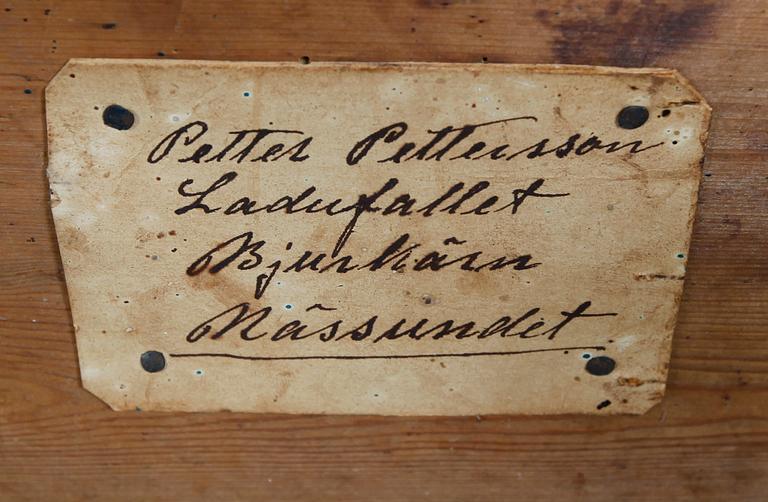 Petter Pettersson
Ladufallet
Bjurkärn
Nässundet